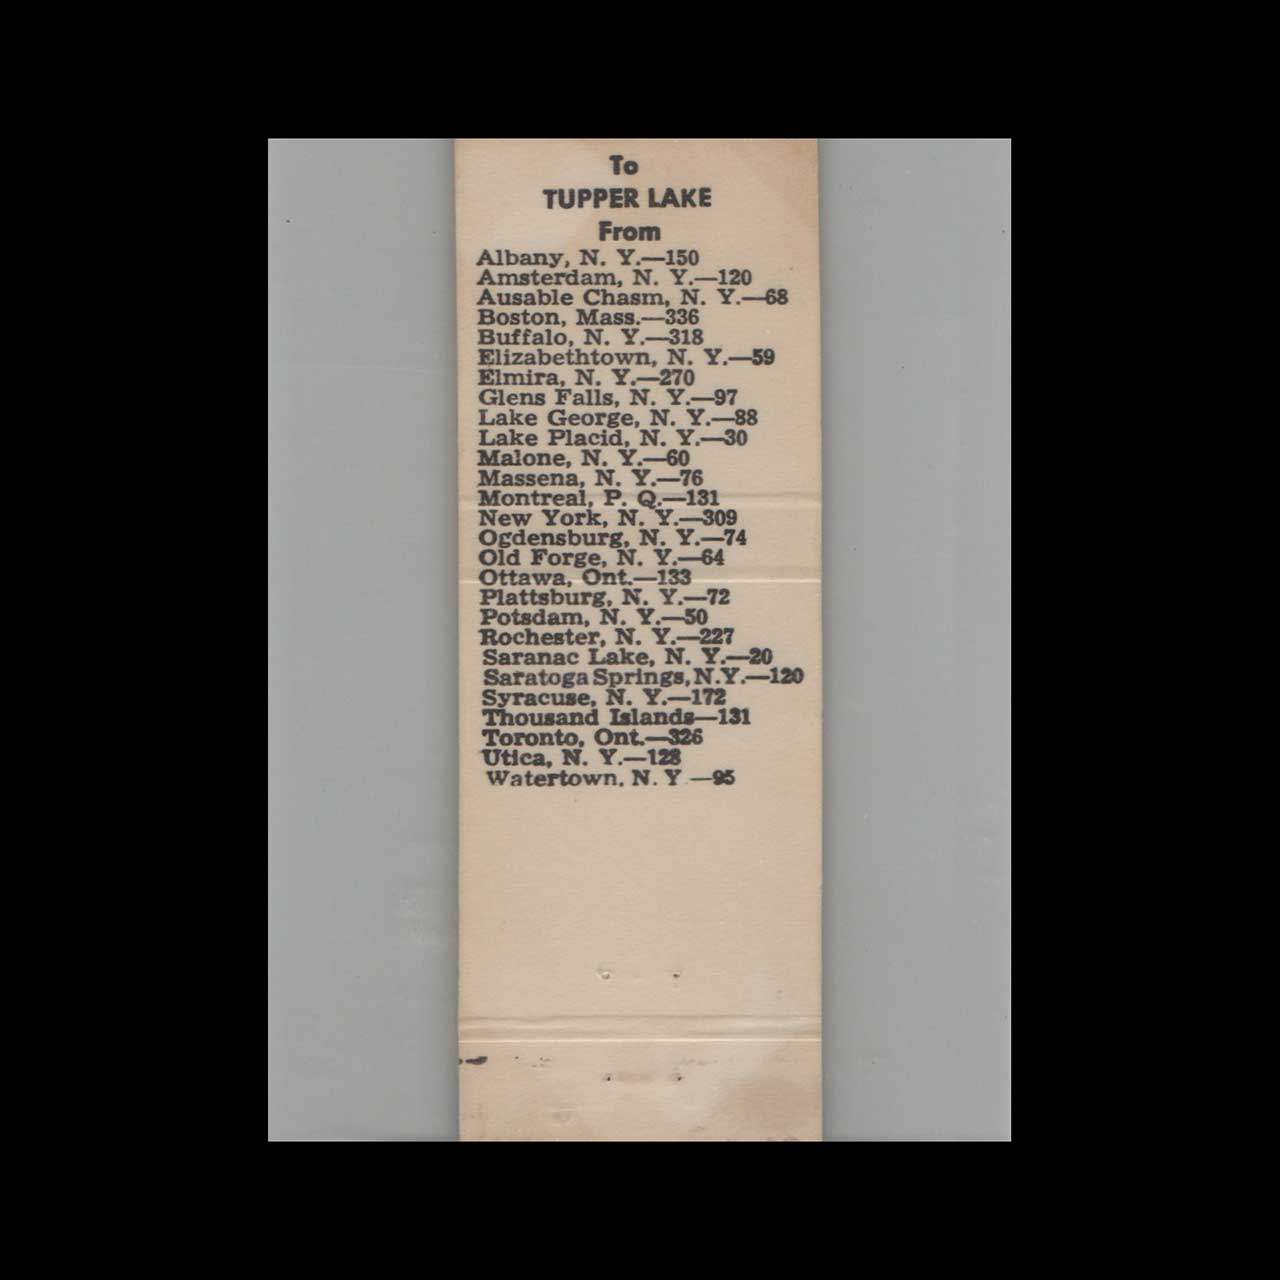 To
TUPPER LAKE
From
Albany, N. Y.—150
Amsterdam, N. Y.—120
Ausable Chasm, N. Y.—68
Boston, Mass.—336
Buffalo, N. Y.—318
Elizabethtown, N. Y.—59
Elmira, N. Y.—270
Glens Falls, N. Y.—97
Lake George, N. Y.—88
Lake Placid, N. Y.—30
Malone, N. Y.—60
Massena, N. Y.—76
Montreal, P. Q.—131
New York, N. Y.—309
Ogdensburg, N. Y.—74
Old Forge, N. Y.—64
Ottawa, Ont.—133
Plattsburg, N. Y.—72
Potsdam, N. Y.—50
Rochester, N. Y.—227
Saranac Lake, N. Y.—20
Saratoga Springs, N.Y.—120
Syracuse, N. Y.—172
Thousand Islands—131
Toronto, Ont.—326
Utica, N. Y.—128
Watertown, N. Y —95